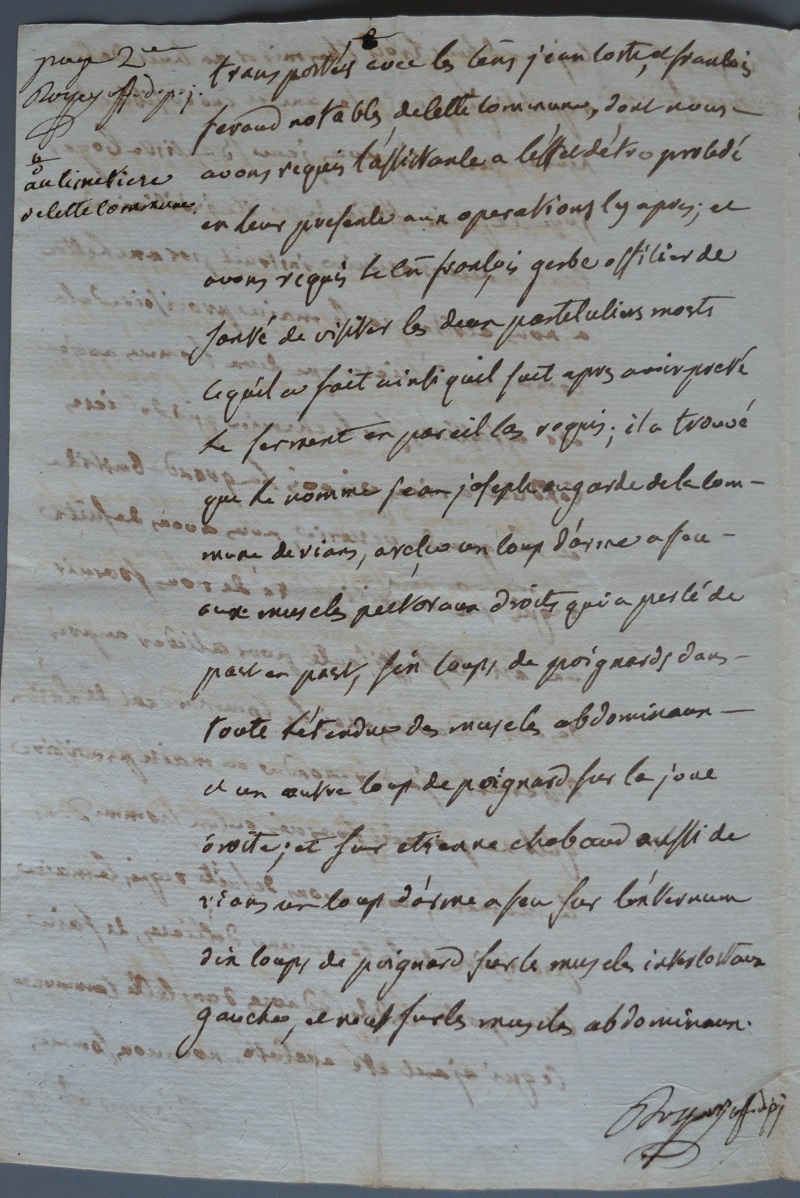 page 2eme
Royer off. de p. j.
au cimetiere
de cette commune
transportés avec les Cens jean coste, et francois
feraud notables de cette commune, dont nous
avons requis l'assistance a l'effet d'étre procédé
en leur presence aux operations cy apres; et
avons requis le Cn francois gerbe officier de
santé de visiter les deux particuliers morts
ce qu'il a fait ainsi quil suit apres avoir preté
le serment en pareil cas requis; il a trouvé
que le nommé jean joseph augarde de la com-
mune de rians, a reçu un coup d'arme a feu
aux muscles pectoraux droits qui a percé de
part en part, six coups de poignards dans
toute l'étendue des muscles abdominaux
et un autre coup de poignard sur la joue
droite; et sur etienne chabaud aussi de
rians un coup d'arme a feu sur l'externum
dix coups de poignard sur le muscles intercostaux
gauche, et neuf sur les muscles abdominaux.
Royer off. de p. j.